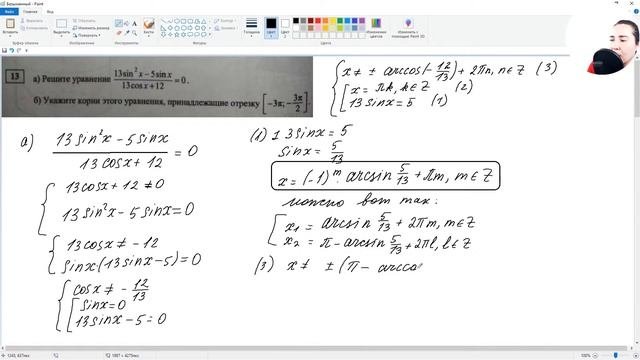 Безымянный - Paint
Файл
Главная
Вид
Вставить
Вырезать
Копировать
Выделить
Обрезать
Изменить размер
Повернуть
Кисти
Контур
Заливка
Толщина
Цвет 1
Цвет 2
Изменение цветов
Изменить с помощью Paint 3D
Буфер обмена
Изображение
Инструменты
Фигуры
Цвета
13
а) Решите уравнение (13sin²x − 5sinx)/(13cosx + 12) = 0.
б) Укажите корни этого уравнения, принадлежащие отрезку [−3π; −3π/2].
а) (13sin²x − 5sinx)/(13cosx + 12) = 0
13cosx + 12 ≠ 0
13sin²x − 5sinx = 0
13cosx ≠ −12
sinx(13sinx − 5) = 0
cosx ≠ −12/13
sinx = 0
13sinx − 5 = 0
x ≠ ± arccos(−12/13) + 2πn, n∈Z (3)
x = πk, k∈Z (2)
13sinx = 5 (1)
(1) 13sinx = 5
sinx = 5/13
x = (−1)^m · arcsin 5/13 + πm, m∈Z
можно вот так:
x₁ = arcsin 5/13 + 2πm, m∈Z
x₂ = π − arcsin 5/13 + 2πl, l∈Z
(3) x ≠ ± (π − arcco